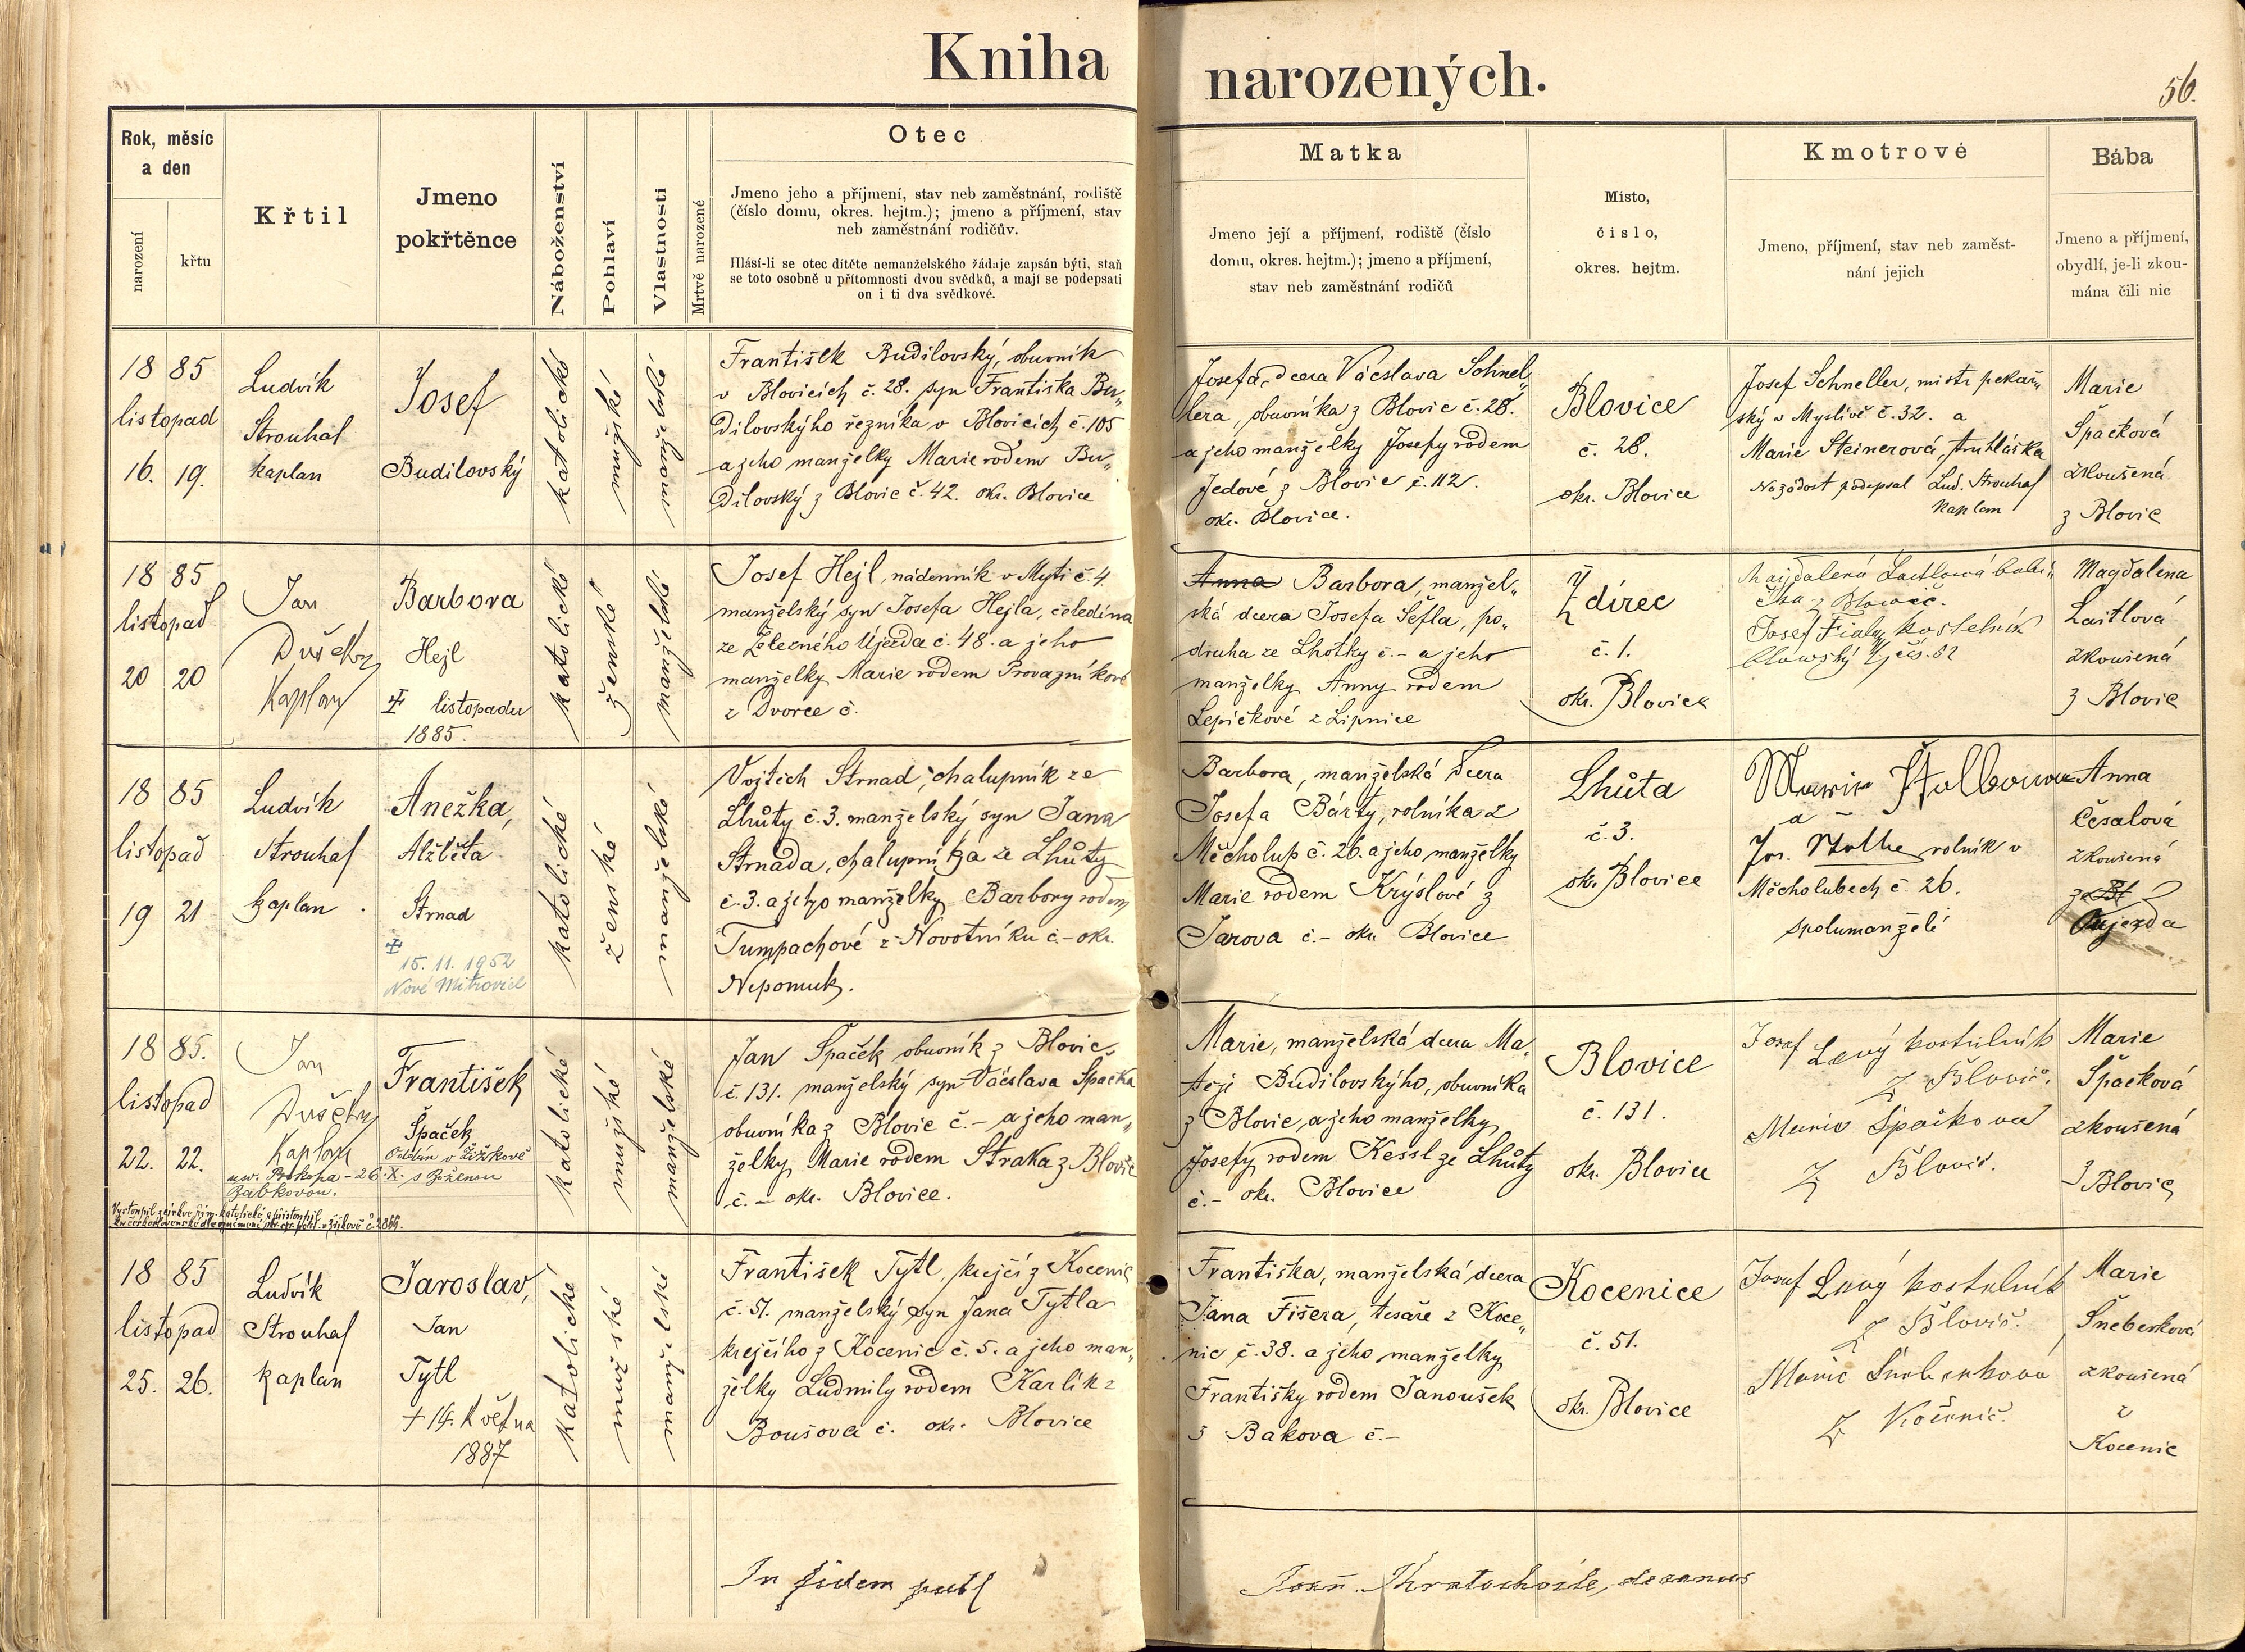 Kniha narozených.
56.
Rok, měsíc
a den
narození
křtu
Křtil
Jmeno
pokřtěnce
Náboženství
Pohlaví
Vlastnosti
Mrtvě narozené
Otec
Jmeno jeho a příjmení, stav neb zaměstnání, rodiště
(číslo domu, okres. hejtm.); jmeno a příjmení, stav
neb zaměstnání rodičův.
Hlásí-li se otec dítěte nemanželského žádaje zapsán býti, staň
se toto osobně u přítomnosti dvou svědků, a mají se podepsati
on i ti dva svědkové.
Matka
Jmeno její a příjmení, rodiště (číslo
domu, okres. hejtm.); jmeno a příjmení,
stav neb zaměstnání rodičů
Místo,
číslo,
okres. hejtm.
Kmotrové
Jmeno, příjmení, stav neb zaměst-
nání jejich
Bába
Jmeno a příjmení,
obydlí, je-li zkou-
mána čili nic
1885
listopad
16. 19.
Ludvík
Strouhal
kaplan
Josef
Budilovský
katolické
mužské
manželské
František Budilovský, obuvník
v Blovicích č. 28. syn Františka Bu„
dilovskýho řezníka v Blovicích č. 105
a jeho manželky Marie rodem Bu„
dilovský z Blovic č. 42. okr. Blovice
Josefa, dcera Václava Schnel„
lera, obuvníka z Blovic č. 28.
a jeho manželky Josefy rodem
Jedové z Blovic č. 112.
okr. Blovice.
Blovice
č. 28.
okr. Blovice
Josef Schneller, mistr pekař„
ský v Myslívě č. 32. a
Marie Steinerová, truhlářka
Na žádost podepsal Lud. Strouhal
kaplan
Marie
Špačková
zkoušená
z Blovic
1885
listopad
20 20
Jan
Dušek
Kaplan
Barbora
Hejl
listopadu
1885.
katolické
ženské
manželské
Josef Hejl, nádenník v Mytí č. 4.
manželský syn Josefa Hejla, čeledína
ze Železného Újezda č. 48. a jeho
manželky Marie rodem Provazníkové
z Dvorce č.
Anna Barbora, manžel„
ská dcera Josefa Šefla, po„
druha ze Lhotky č. – a jeho
manželky Anny rodem
Lepičkové z Lipnice
Ždírec
č. 1.
okr. Blovice
Magdalena Laitlová babi„
čka z Blovic.
Josef Fiala kostelník
blowský čís. 82
Magdalena
Laitlová
zkoušená
z Blovic
1885
listopad
19 21
Ludvík
Strouhal
kaplan.
Anežka,
Alžběta
Strnad
15. 11. 1952
Nové Mitrovice
katolické
ženské
manželské
Vojtěch Strnad, chalupník ze
Lhůty č. 3. manželský syn Jana
Strnada, chalupníka ze Lhůty
č. 3. a jeho manželky Barbory rodem
Tumpachové z Novotníku č. – okr.
Nepomuk.
Barbora, manželská dcera
Josefa Bárty, rolníka z
Měcholup č. 26. a jeho manželky
Marie rodem Krýslové z
Jarova č. – okr. Blovice
Lhůta
č. 3.
okr. Blovice
Marie
a
Jos. rolník v
Měcholubech č. 26.
spolumanželé
Anna
Česalová
zkoušená
z Bl
Oujezda
1885.
listopad
22. 22.
Jan
Dušek
Kaplan
František
Špaček
Oddán v Žižkově
u sv. Prokopa – 26. X. s Boženou
Žabkovou.
katolické
mužské
manželské
Jan Špaček obuvník z Blovic
č. 131. manželský syn Václava Špačka
obuvníka z Blovic č. – a jeho man„
želky Marie rodem Straka z Blovic
č. – okr. Blovice.
Marie, manželská dcera Ma„
těje Budilovskýho, obuvníka
z Blovic, a jeho manželky
Josefy rodem Kessl ze Lhůty
č. – okr. Blovice
Blovice
č. 131.
okr. Blovice
Josef Levý kostelník
z Blovic.
Marie Špačková
z Blovic.
Marie
Špačková
zkoušená
z Blovic
1885
listopad
25. 26.
Ludvík
Strouhal
kaplan
Jaroslav,
Jan
Tytl
+ 14. Května
1887
katolické
mužské
manželské
František Tytl, krejčí z Kocenic
č. 51. manželský syn Jana Tytla
krejčího z Kocenic č. 5. a jeho man„
želky Ludmily rodem Karlík z
Boušova č. okr. Blovice
Františka, manželská dcera
Jana Fišera, tesaře z Koce„
nic č. 38. a jeho manželky
Františky rodem Janoušek
z Bakova č. –
Kocenice
č. 51.
okr. Blovice
Josef Levý kostelník
z Blovic.
Marie Šneberková
z Kocenic.
Marie
Šneberková
zkoušená
z
Kocenic
In fidem publ
Joan. Kratochvíle, decanus